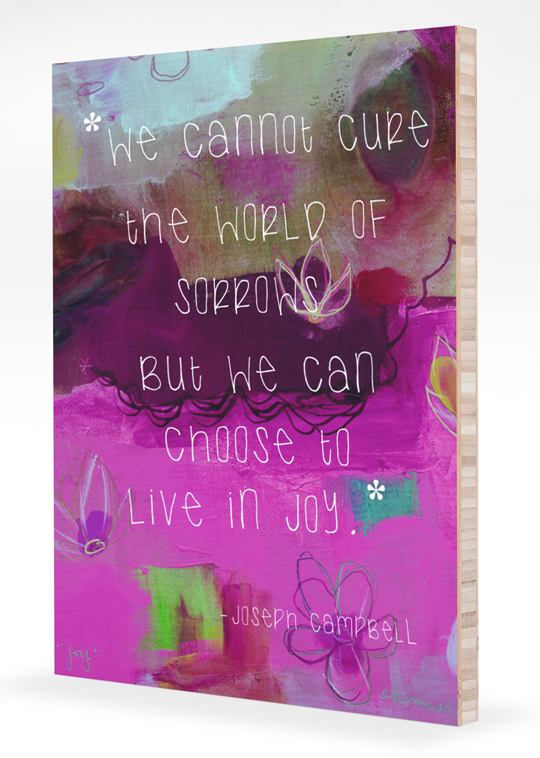 *We cannot cure
the world of
sorrows
but we can
choose to
live in joy.*
-Joseph Campbell
"joy"